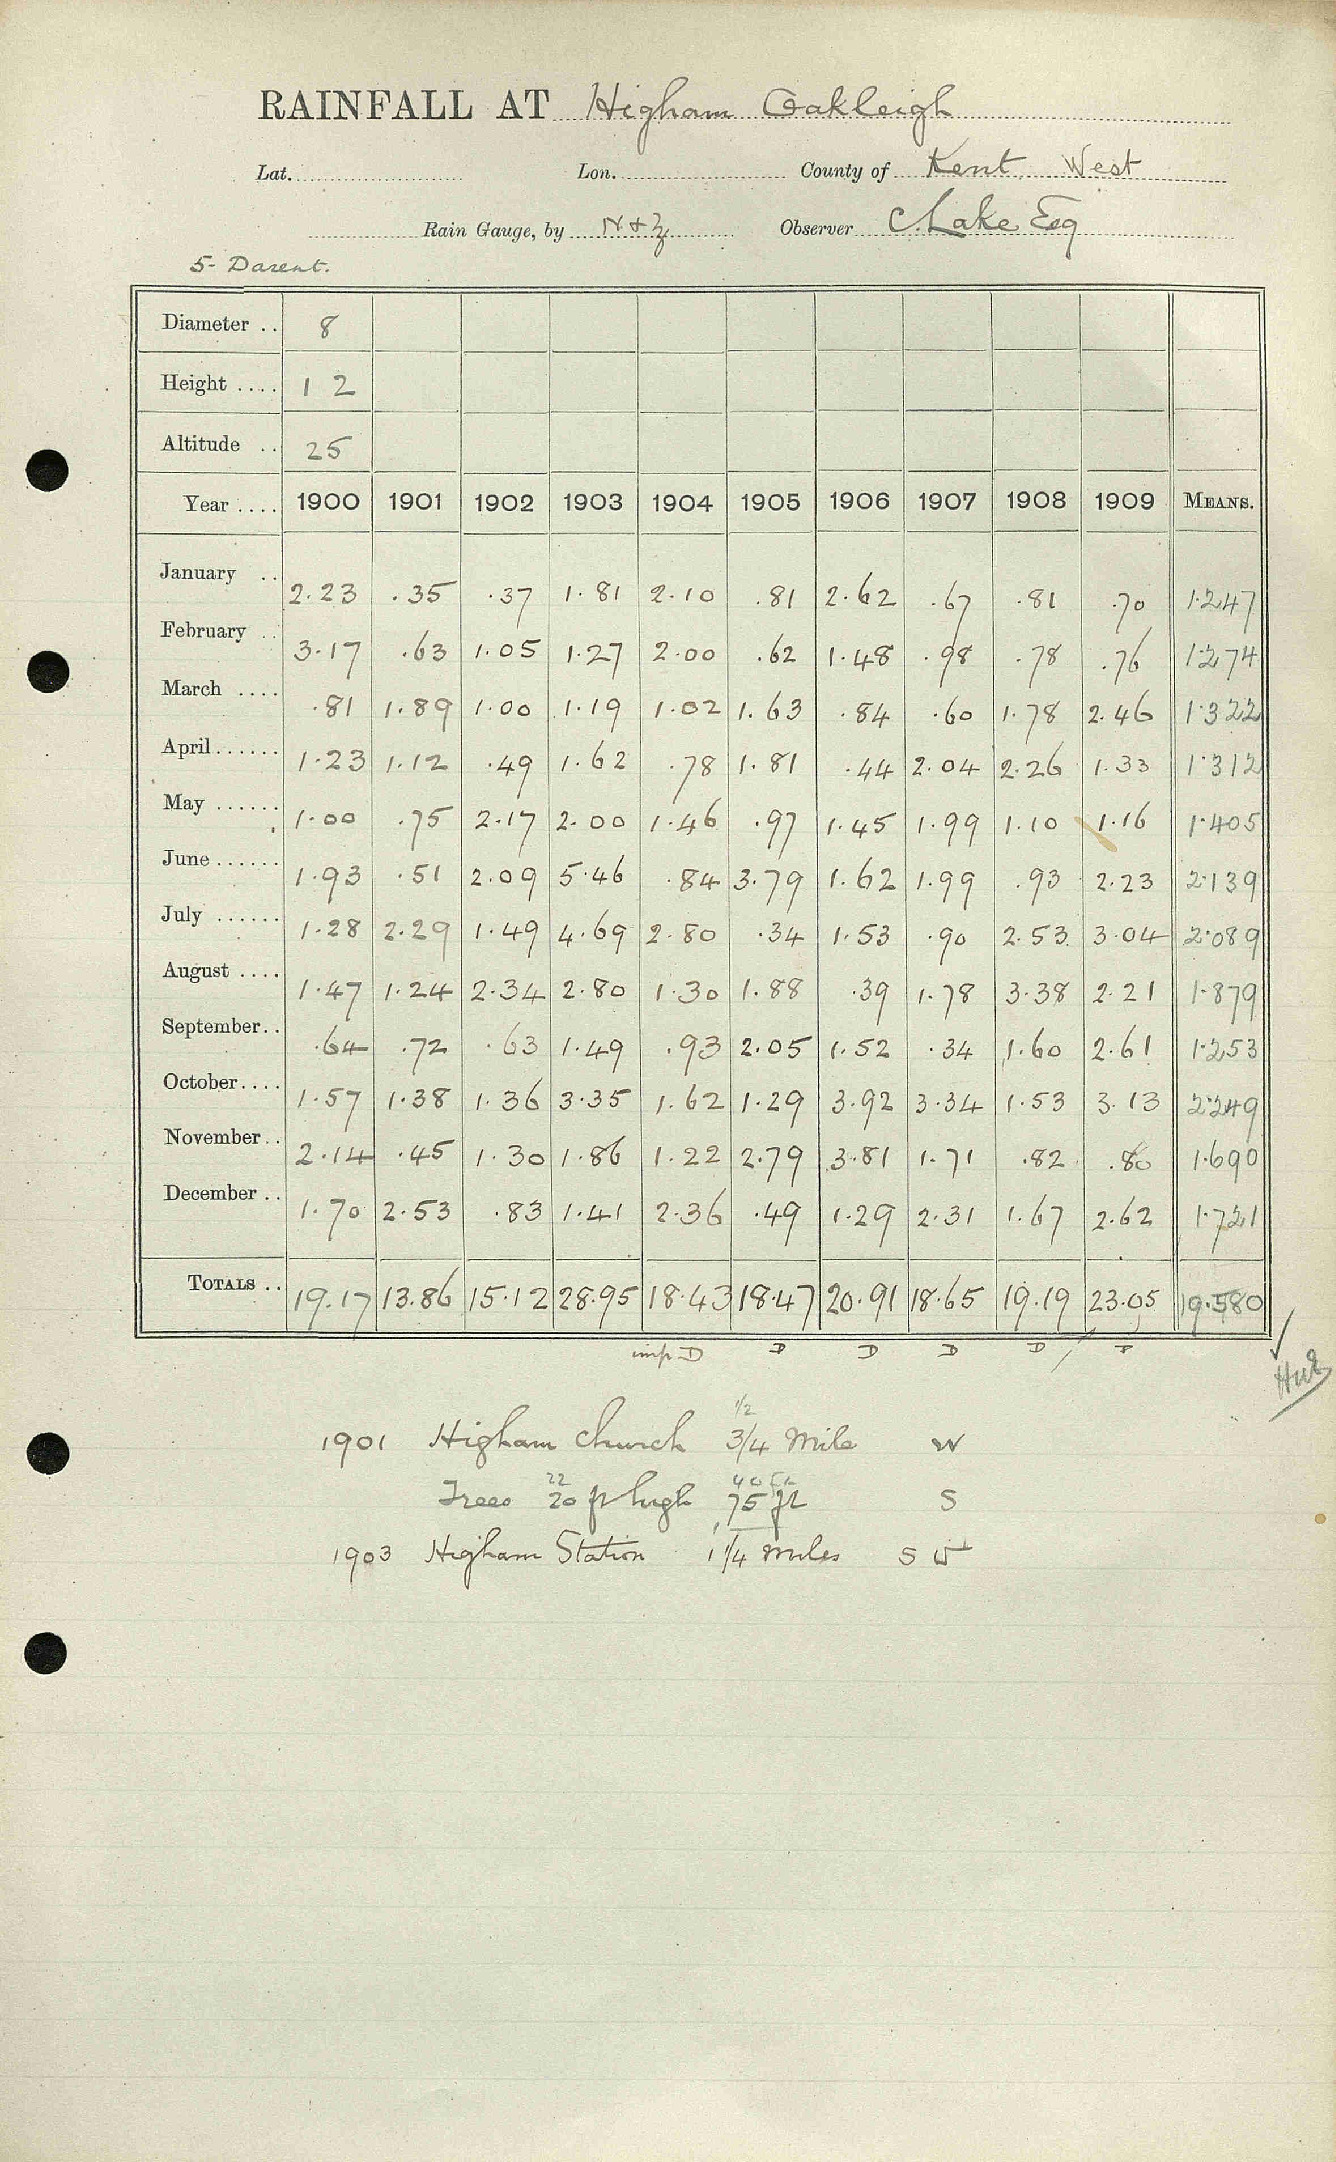 RAINFALL AT Higham Oakleigh
Lat. Lon. County of Kent West
Rain Gauge, by N + Z Observer C. Lake Esq
5- Darent.
Diameter .. 8
Height .... 12
Altitude .. 25
Year .... 1900 1901 1902 1903 1904 1905 1906 1907 1908 1909 MEANS.
January .. 2.23 .35 .37 1.81 2.10 .81 2.62 .67 .81 .70 1.247
February .. 3.17 .63 1.05 1.27 2.00 .62 1.48 .98 .78 .76 1.274
March .... .81 1.89 1.00 1.19 1.02 1.63 .84 .60 1.78 2.46 1.322
April...... 1.23 1.12 .49 1.62 .78 1.81 .44 2.04 2.26 1.33 1.312
May ...... 1.00 .75 2.17 2.00 1.46 .97 1.45 1.99 1.10 1.16 1.405
June ...... 1.93 .51 2.09 5.46 .84 3.79 1.62 1.99 .93 2.23 2.139
July ...... 1.28 2.29 1.49 4.69 2.80 .34 1.53 .90 2.53 3.04 2.089
August .... 1.47 1.24 2.34 2.80 1.30 1.88 .39 1.78 3.38 2.21 1.879
September.. .64 .72 .63 1.49 .93 2.05 1.52 .34 1.60 2.61 1.253
October.... 1.57 1.38 1.36 3.35 1.62 1.29 3.92 3.34 1.53 3.13 2.249
November.. 2.14 .45 1.30 1.86 1.22 2.79 3.81 1.71 .82 .80 1.690
December .. 1.70 2.53 .83 1.41 2.36 .49 1.29 2.31 1.67 2.62 1.721
TOTALS .. 19.17 13.86 15.12 28.95 18.43 18.47 20.91 18.65 19.19 23.05 19.580
imp D D D D D D
1/2
1901 Higham Church 3/4 Mile W
22 40 ft
Trees 20 ft high 75 ft S
1903 Higham Station 1 1/4 miles S W